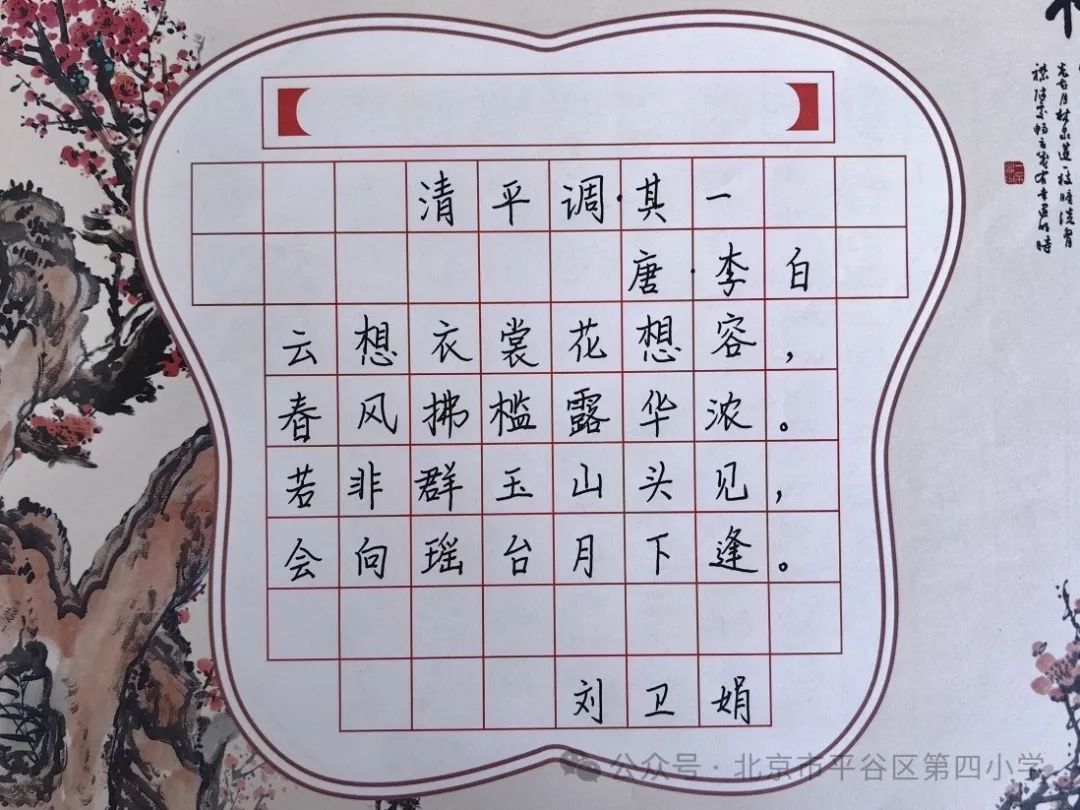 清平调·其一
唐·李白
云想衣裳花想容，
春风拂槛露华浓。
若非群玉山头见，
会向瑶台月下逢。
刘卫娟
公众号·北京市平谷区第四小学